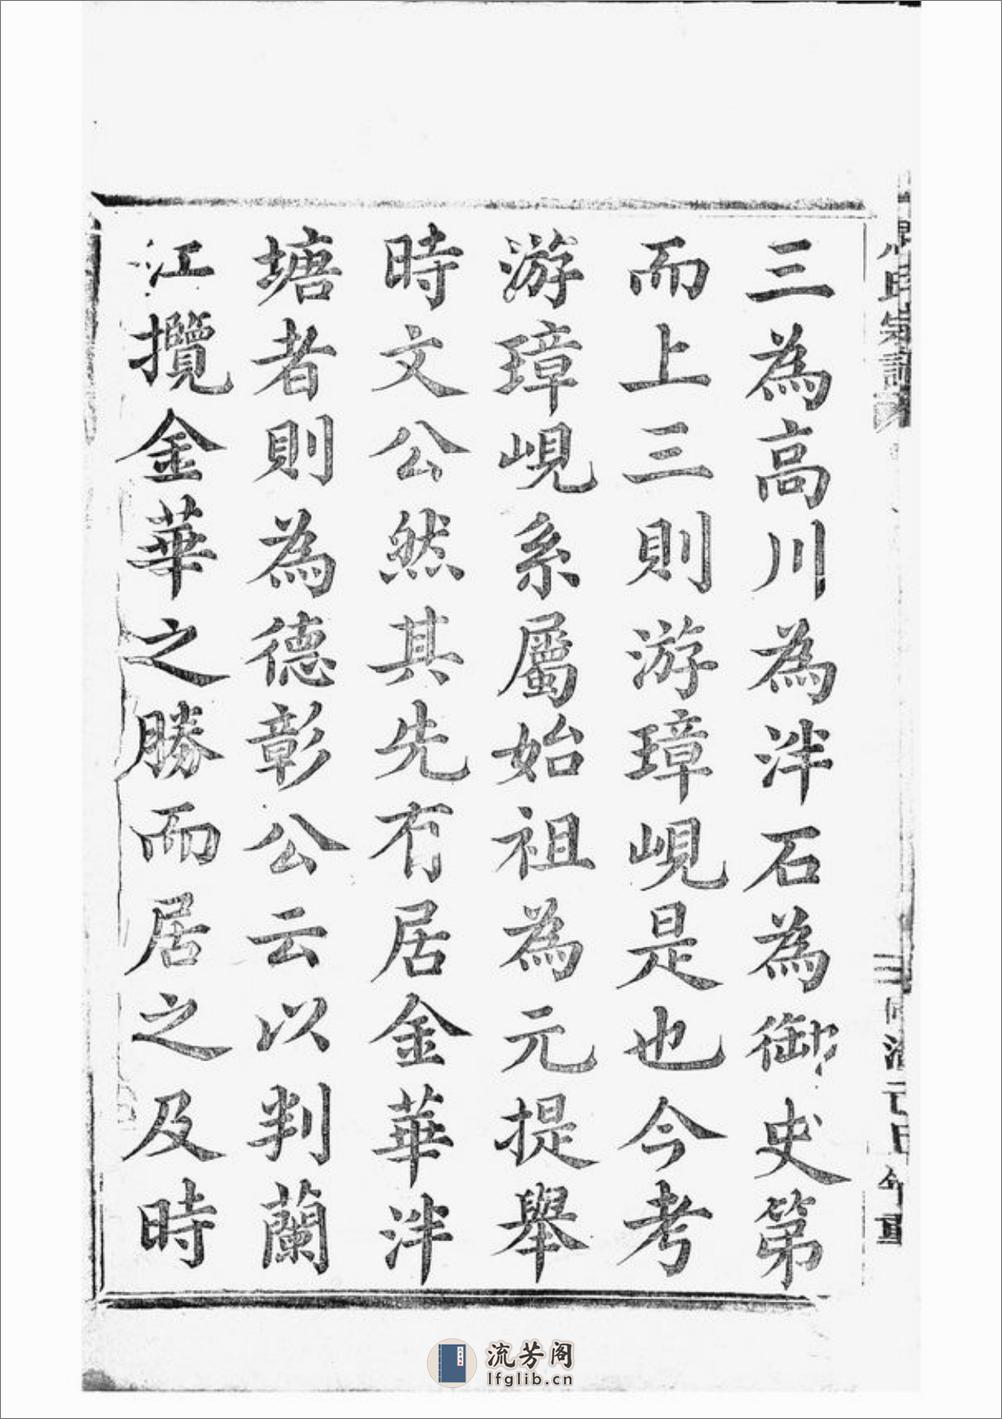 三為高川為泮石為御史第
而上三則游璋峴是也今考
游璋峴系屬始祖為元提舉
時文公然其先有居金華泮
塘者則為德彰公云以判蘭
江攬金華之勝而居之及時
氏宗譜
年重
流芳阁
lfglib.cn